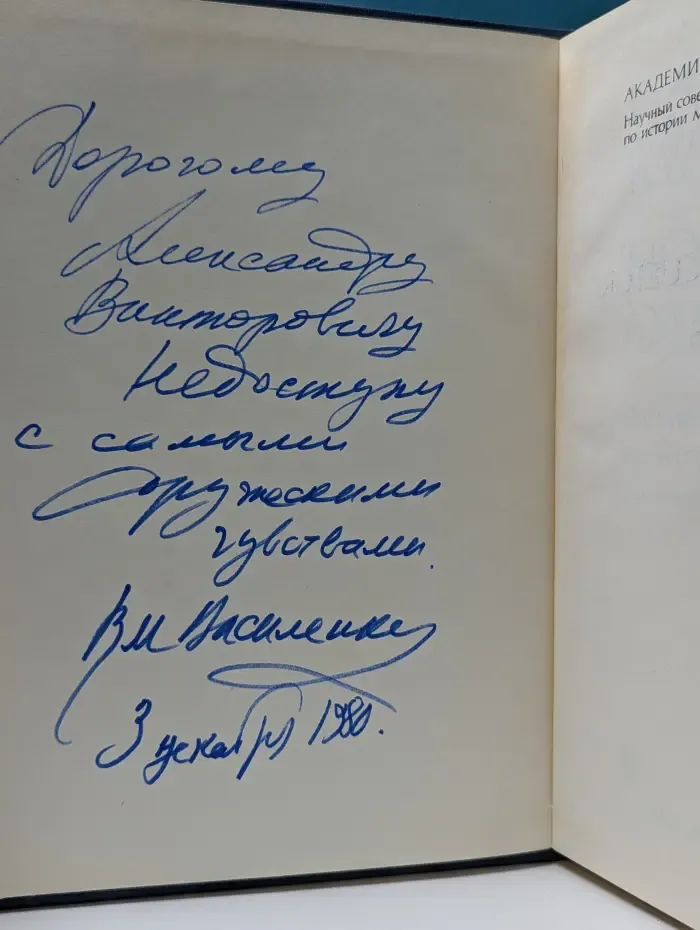 Дорогому
Александру
Викторовичу
Недоступу
с самыми
дружескими
чувствами.
ВМ Василенко
3 декабря 1980.
АКАДЕМИ
Научный сове
по истории М